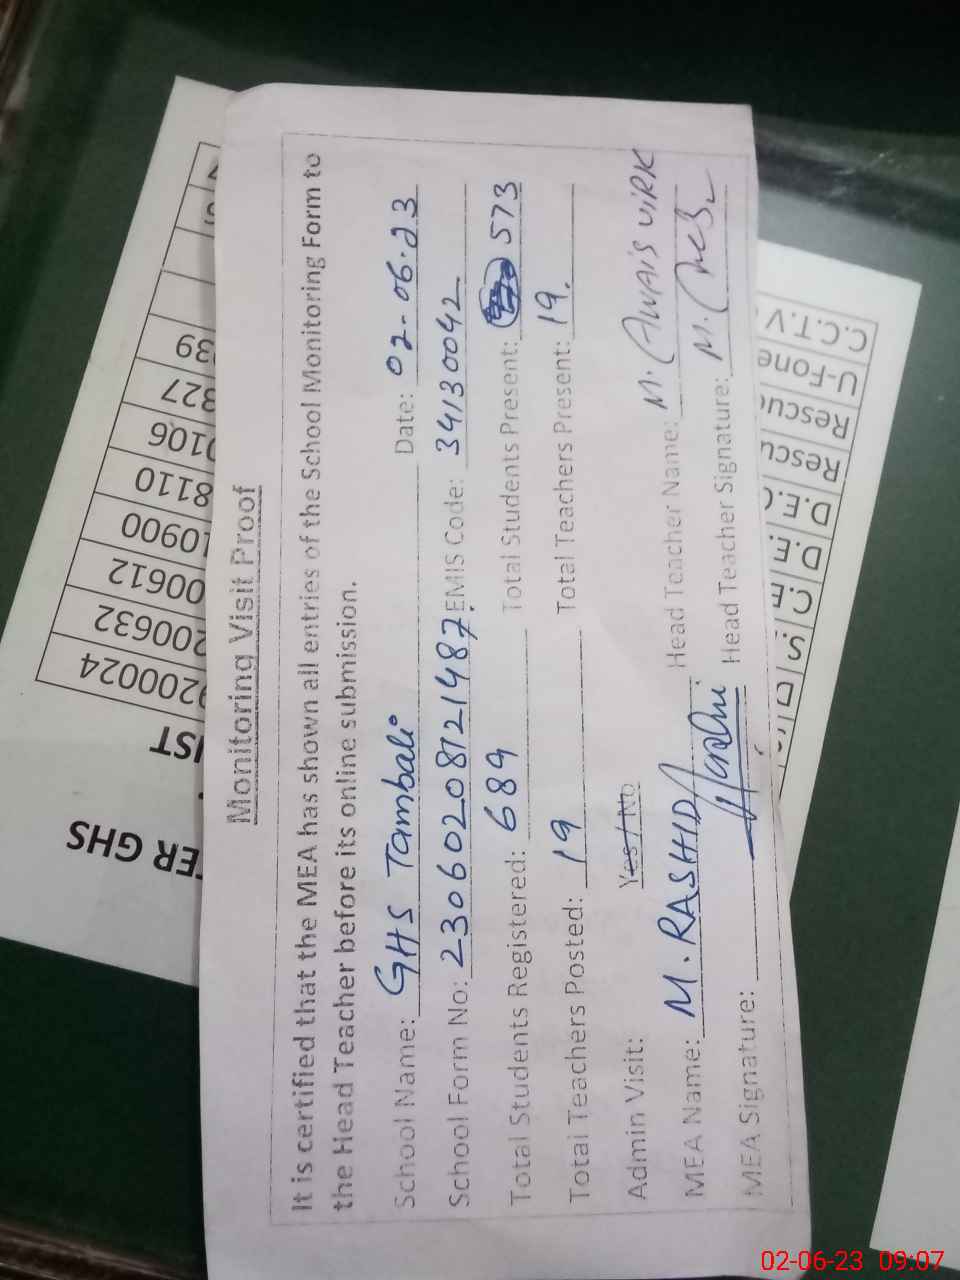 Monitoring Visit Proof
It is certified that the MEA has shown all entries of the School Monitoring Form to
the Head Teacher before its online submission.
School Name: GHS Tambali Date: 02-06-23
School Form No: 23060208121487 EMIS Code: 34130042
Total Students Registered: 689 Total Students Present: 573
Total Teachers Posted: 19 Total Teachers Present: 19.
Admin Visit: Yes/No
MEA Name: M. RASHID Head Teacher Name: M. AWAIS VIRK
MEA Signature: Head Teacher Signature:
TER GHS
IST
9200024
200632
00612
10900
8110
0106
327
039
S.
C.E
D.E.
D.E.O
Rescu
Rescue
U-Fone
C.C.T.V.
02-06-23 09:07